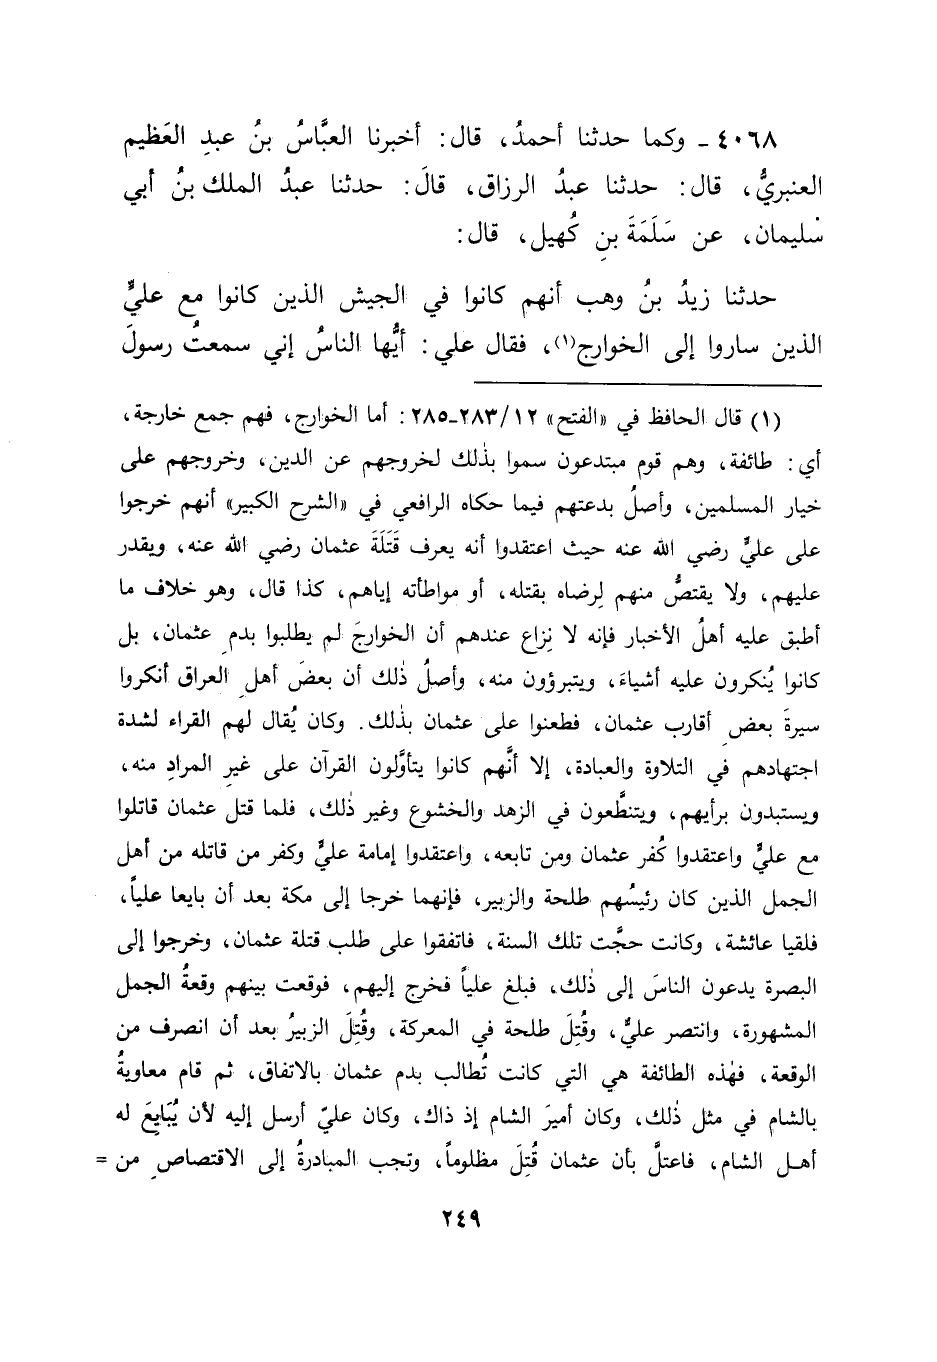 ٤٠٦٨ ـ وكما حدثنا أحمدُ، قال: أخبرنا العبَّاسُ بنُ عبدِ العَظيم
العنبريُّ، قال: حدثنا عبدُ الرزاق، قالَ: حدثنا عبدُ الملك بنُ أبي
سْليمان، عن سَلَمَةَ بنِ كُهيل، قال:
حدثنا زيدُ بنُ وهب أنهم كانوا في الجيش الذين كانوا مع عليٍّ
الذين ساروا إلى الخوارج(١)، فقال علي: أيُّها الناسُ إني سمعتُ رسولَ
(١) قال الحافظ في «الفتح» ٢٨٣/١٢ـ٢٨٥: أما الخوارج، فهم جمع خارجة،
أي: طائفة، وهم قوم مبتدعون سموا بذٰلك لخروجهم عن الدين، وخروجهم على
خيار المسلمين، وأصلُ بدعتهم فيما حكاه الرافعي في «الشرح الكبير» أنهم خرجوا
على عليٍّ رضي الله عنه حيث اعتقدوا أنه يعرف قَتَلَةَ عثمان رضي الله عنه، ويقدر
عليهم، ولا يقتصُّ منهم لِرضاه بقتله، أو مواطأته إياهم، كذا قال، وهو خلاف ما
أطبق عليه أهلُ الأخبار فإنه لا نِزاع عندهم أن الخوارجَ لم يطلبوا بدمِ عثمان، بل
كانوا يُنكرون عليه أشياءَ، ويتبرؤون منه، وأصلُ ذٰلك أن بعضَ أهلِ العراق أنكروا
سيرةَ بعضِ أقارب عثمان، فطعنوا على عثمان بذٰلك. وكان يُقال لهم القراء لشدة
اجتهادهم في التلاوة والعبادة، إلا أنَّهم كانوا يتأوَّلون القرآن على غيرِ المرادِ منه،
ويستبدون برأيهم، ويتنطَّعون في الزهد والخشوع وغير ذٰلك، فلما قتل عثمان قاتلوا
مع عليٍّ واعتقدوا كُفر عثمان ومن تابعه، واعتقدوا إمامة عليٍّ وكفر من قاتله من أهل
الجمل الذين كان رئيسُهم طلحة والزبير، فإنهما خرجا إلى مكة بعد أن بايعا علياً،
فلقيا عائشة، وكانت حجَّت تلك السنة، فاتفقوا على طلب قتلة عثمان، وخرجوا إلى
البصرة يدعون الناسَ إلى ذٰلك، فبلغ علياً فخرج إليهم، فوقعت بينهم وقعةُ الجمل
المشهورة، وانتصر عليٌّ، وقُتِلَ طلحة في المعركة، وقُتِلَ الزبيرُ بعد أن انصرف من
الوقعة، فهٰذه الطائفة هي التي كانت تُطالب بدم عثمان بالاتفاق، ثم قام معاويةُ
بالشام في مثل ذٰلك، وكان أميرَ الشام إذ ذاك، وكان عليّ أرسل إليه لأن يُبَايعَ له
أهل الشام، فاعتلَّ بأن عثمان قُتِلَ مظلوماً، وتجب المبادرةُ إلى الاقتصاصِ من =
٢٤٩